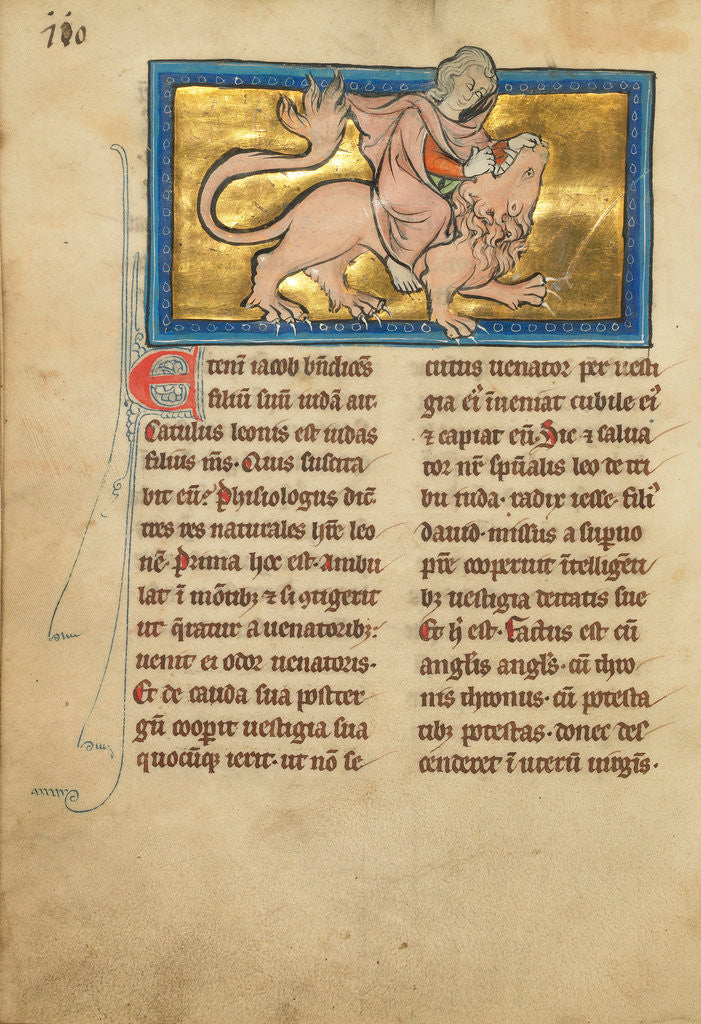 iio
Etenī iacob bn̄dicēs
filiū suū iudā ait.
Catulus leonis est iudas
filius m̄s. Quis suscita
bit eū? Phisiologus dic̄.
tres res naturales hr̄e leo
nē. Prima hec est. Ambu
lat ī mōtibꝫ ⁊ si ꝯtigerit
ut q̄ratur a uenatoribꝫ:
uenit ei odor uenatoris.
Et de cauda sua post ter
gū coop̄it uestigia sua
quocūqꝫ ierit. ut nō se
cutus uenator per uesti
gia ei' īueniat cubile ei'
⁊ capiat eū. Sic ⁊ salua
tor nr̄ sp̄ualis leo de tri
bu iuda. radix iesse. fili'
dauid. missus a sup̄no
pr̄e cooperuit ītelligēti
bꝫ uestigia deitatis sue
Et h' est. Factus est cū
angl̄is angl's. cū thro
nis thronus. cū potesta
tibꝫ potestas. donec des
cenderet ī uterū uirgīs.